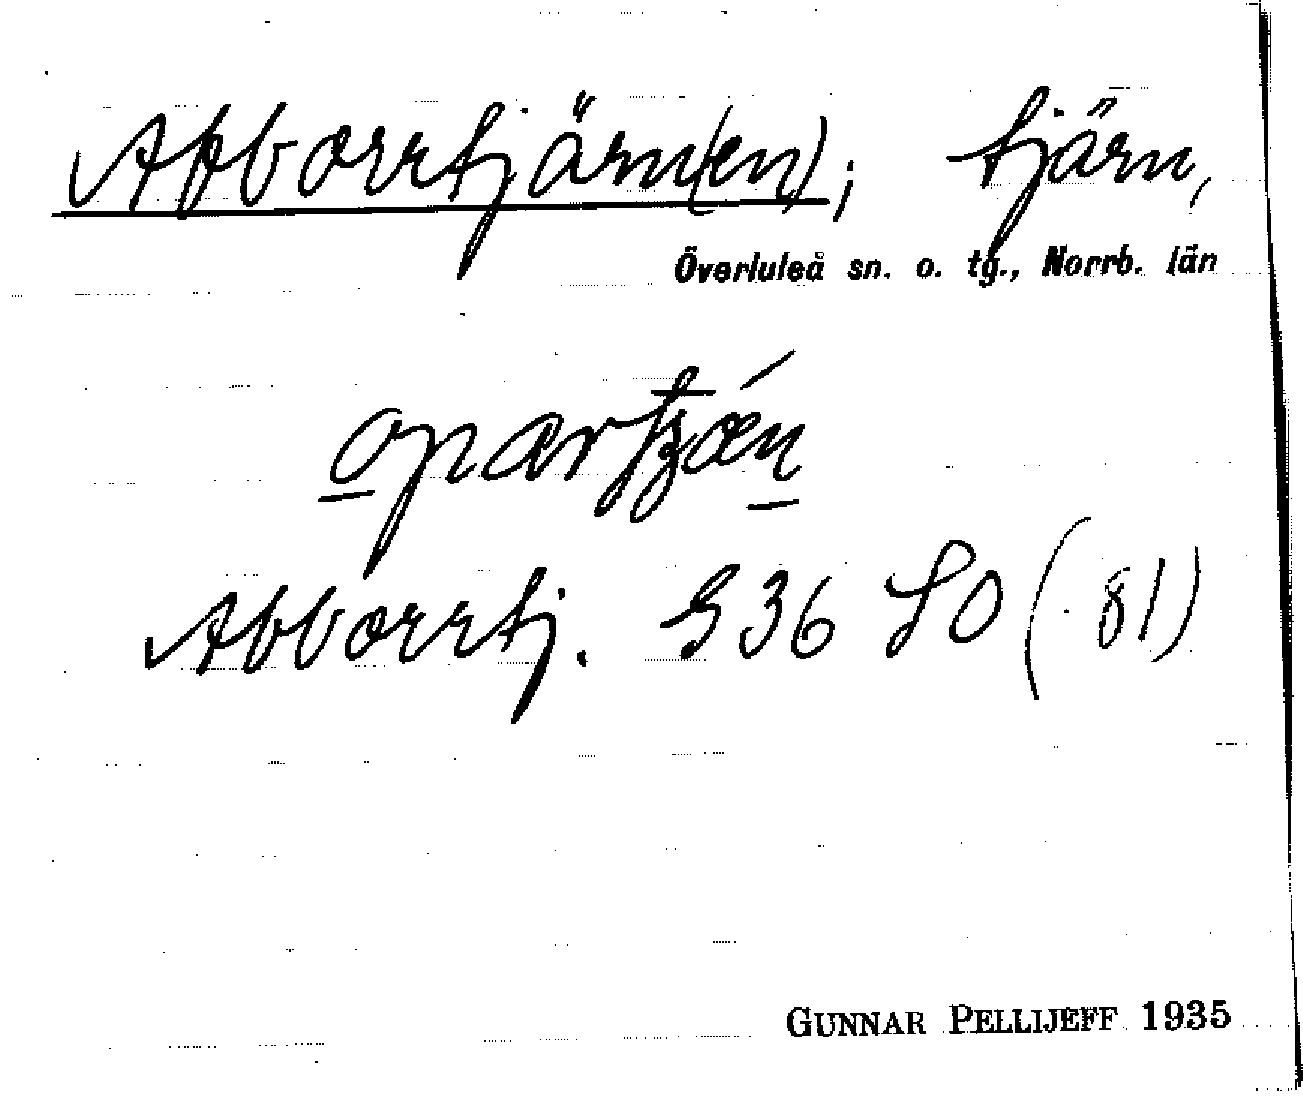 Abborrtjärn(en); tjärn,
Överluleå sn. o. tg., Norrb. län
Abborrtj. S36 SO (81)
GUNNAR PELLIJEFF 1935